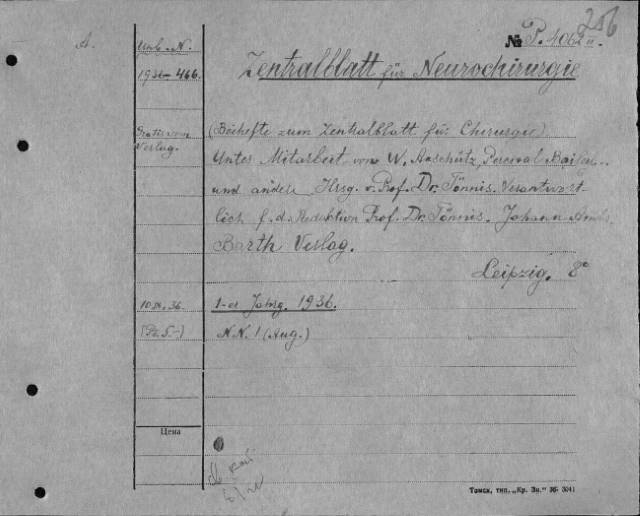 256
A.
№ P. 4062 II.
Zentralblatt für Neurochirurgie
Unb. N.
1936-466.
Gratis vom
Verlag.
(Beihefte zum Zentralblatt für Chirurgie)
Unter Mitarbeit von W. Anschütz, Percival Bailey..
und andere Hrsg. v. Prof. Dr. Tönnis. Verantwort-
lich f. d. Redaktion Prof. Dr. Tönnis. Johann Ambr.
Barth Verlag.
Leipzig. 8°
10.IX.36.
1-er Jahrg. 1936.
N.N. 1 (Aug.)
Цена
Томск, тип. „Кр. Зн." 36 3041